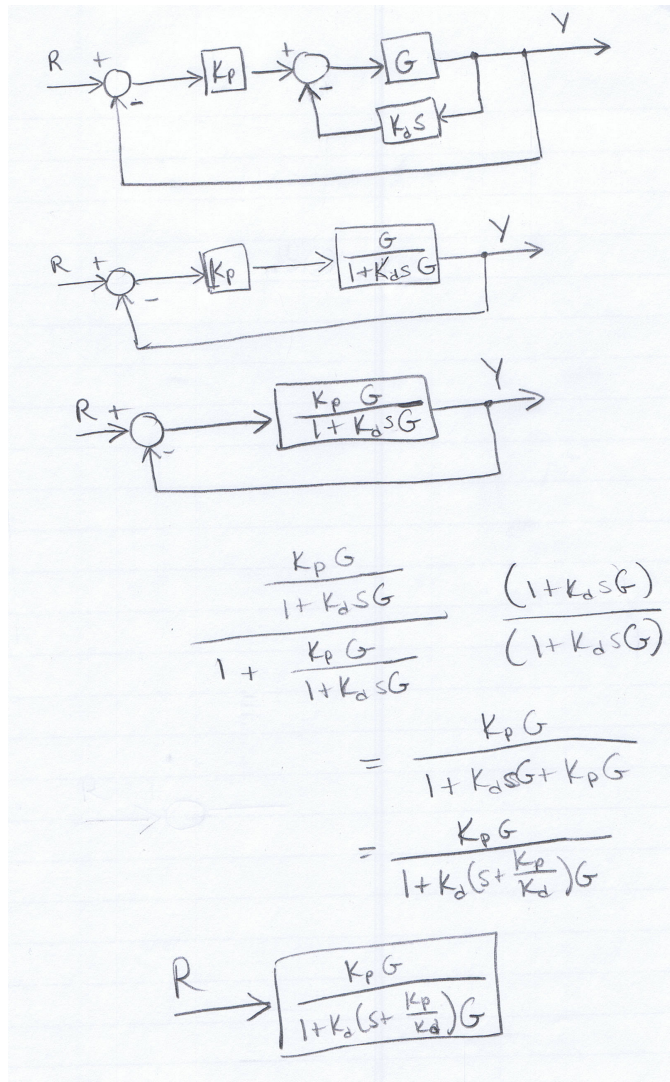 Y
R + Kp + G
- -
Kd s
Y
R + Kp G/(1+KdsG)
-
Y
R + Kp G/(1 + KdsG)
-
(Kp G/(1 + KdsG))/(1 + Kp G/(1 + KdsG)) (1 + KdsG)/(1 + KdsG)
= Kp G/(1 + KdsG + KpG)
= Kp G/(1 + Kd(s + Kp/Kd)G)
R Kp G/(1 + Kd(s + Kp/Kd)G)